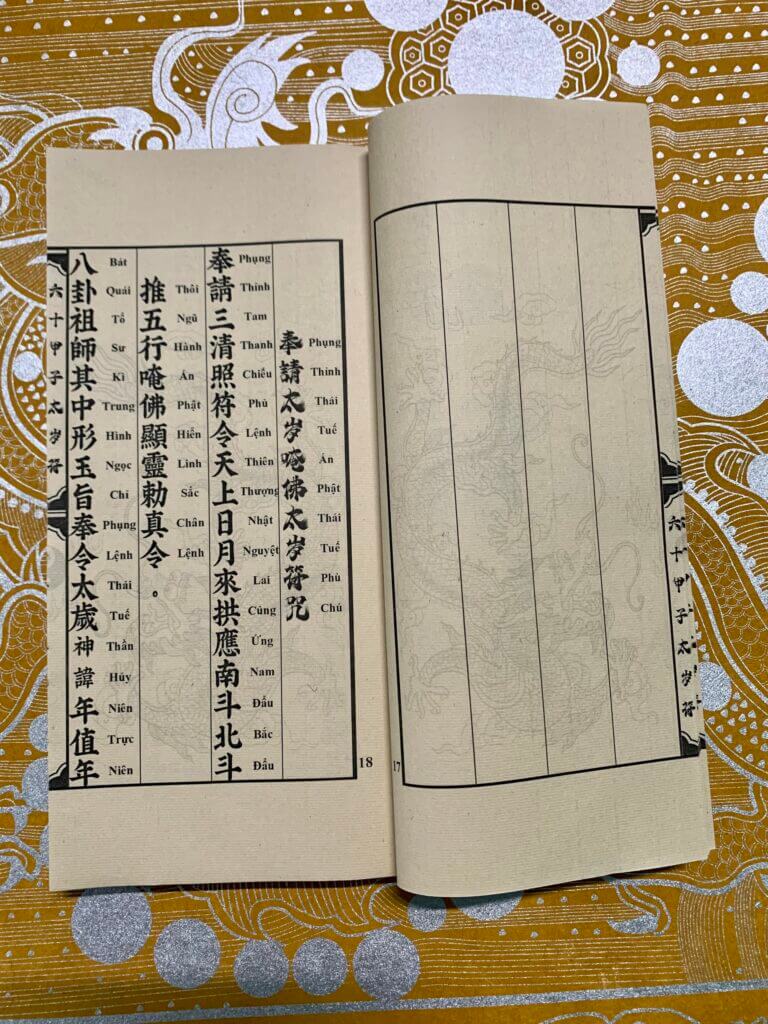 六十甲子太岁符
17
18
奉請太岁唵佛太岁符咒
Phụng Thỉnh Thái Tuế Án Phật Thái Tuế Phù Chú
奉請三清照符令天上日月來拱應南斗北斗
Phụng Thỉnh Tam Thanh Chiếu Phù Lệnh Thiên Thượng Nhật Nguyệt Lai Củng Ứng Nam Đẩu Bắc Đẩu
推五行唵佛顯靈勅真令。
Thôi Ngũ Hành Án Phật Hiển Linh Sắc Chân Lệnh
八卦祖師其中形玉旨奉令太歲神諱年值年
Bát Quái Tổ Sư Kì Trung Hình Ngọc Chỉ Phụng Lệnh Thái Tuế Thần Húy Niên Trực Niên
六十甲子太岁符